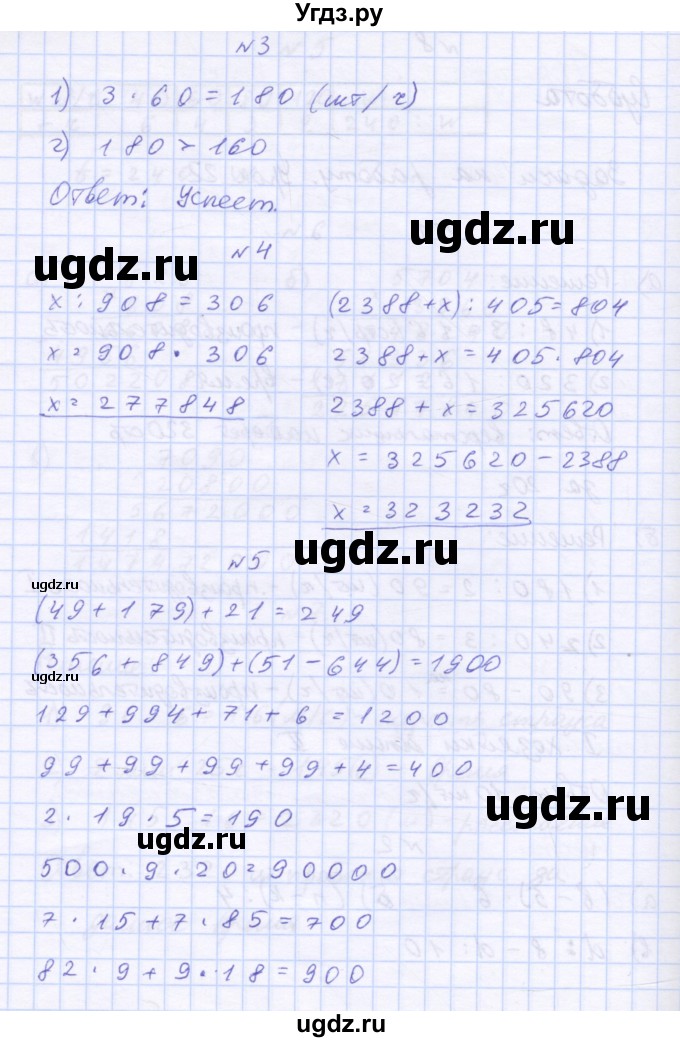 Угдз.ру
№3
1) 3 · 60 = 180 (шт/ч)
2) 180 > 160
Ответ: Успеет.
ugdz.ru
№4
ugdz.ru
x : 908 = 306
x = 908 · 306
x = 277848
(2388 + x) : 405 = 804
2388 + x = 405 · 804
2388 + x = 325620
x = 325620 - 2388
x = 323232
ugdz.ru
№5
ugdz.ru
(49 + 179) + 21 = 249
(356 + 849) + (51 - 644) = 1900
ugdz.ru
129 + 994 + 71 + 6 = 1200
99 + 99 + 99 + 99 + 4 = 400
ugdz.ru
2 · 19 · 5 = 190
ugdz.ru
500 · 9 · 20 = 90000
7 · 15 + 7 · 85 = 700
82 · 9 + 9 · 18 = 900
ugdz.ru